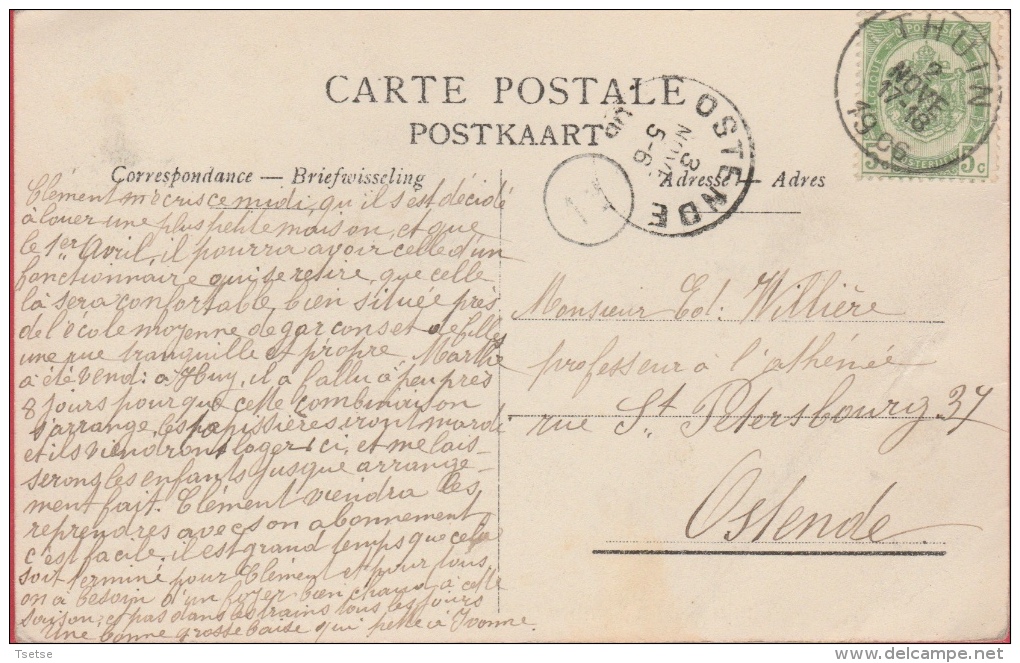 CARTE POSTALE
POSTKAART
THUIN
2
NOVE
17-18
1906
OSTENDE
3
NOVE
5-6
Correspondance — Briefwisseling
Adresse — Adres
5c 5c
Clément m'écris ce midi, qu'il s'est décidé
à louer une plus petite maison, et que
le 1er Avril, il pourra avoir celle d'un
fonctionnaire qui se retire, que celle
là sera confortable, bien située près
de l'école moyenne de garçons et de filles
une rue tranquille et propre. Marthe
à été à Huy, il a fallu à peu près
8 jours pour que cette combinaison
s'arrange, les tapissières iront mardi
et ils viendront loger ici, et me lais-
serong les enfants jusque arrange-
ment fait. Clément viendra les
reprendres avec son abonnement
c'est facile. il est grand temps que cela
soit terminé pour Clément et pour tous
on a besoin d'un foyer bien chaud à cette
saison, et pas dans les trains tous les jours
Une bonne grosse baise qui pette à Ivonne.
Monsieur Ed. Willière
professeur à l'athénée
rue St Petersbourg 37
Ostende
Tsetse
delcampe.net